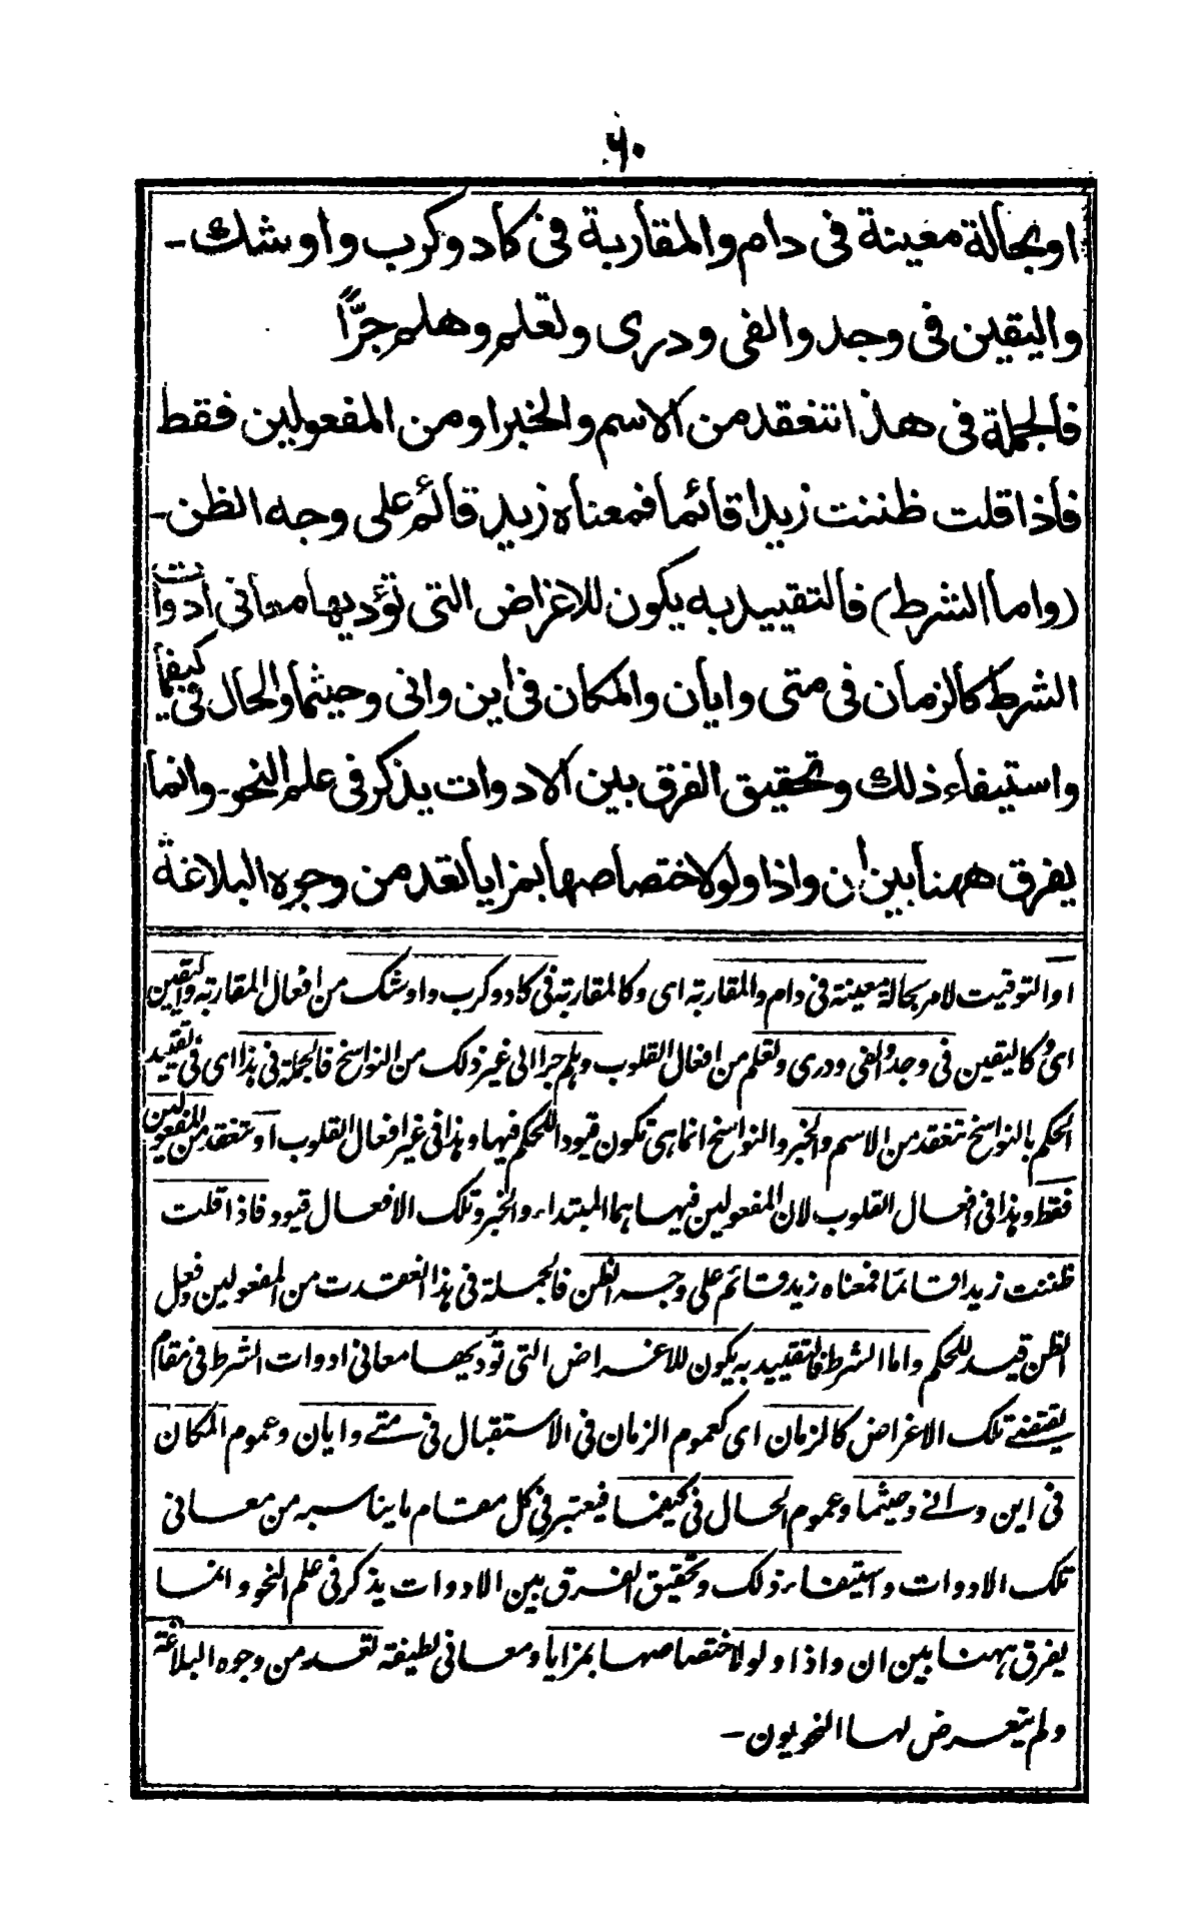 ۶۰
او بحالة معينة فى دام والمقاربة فى كاد وكرب واوشك -
واليقين فى وجد والفى ودرى وتعلم وهلم جرًّا
فالجملة فى هذا تنعقد من الاسم والخبر او من المفعولين فقط
فاذا قلت ظننت زيدا قائما فمعناه زيد قائم على وجه الظن -
(واما الشرط) فالتقييد به يكون للاغراض التى تؤديها معانى ادوات
الشرط كالزمان فى متى وايان والمكان فى اين وانى وحيثما والحال فى كيفما
واستيفاء ذلك وتحقيق الفرق بين الادوات يذكر فى علم النحو - وانما
يفرق ههنا بين ان واذا ولو لاختصاصها بمزايا تعد من وجوه البلاغة
او التوقيت لامر بحالة معينة فى دام والمقاربة اى وكالمقاربة فى كاد وكرب واوشك من افعال المقاربة واليقين
اى وكاليقين فى وجد والفى ودرى وتعلم من افعال القلوب وهلم جرا الى غير ذلك من النواسخ فالجملة فى هذا اى فى تقييد
الحكم بالنواسخ تنعقد من الاسم والخبر والنواسخ انما هى تكون قيودا للحكم فيها وهذا فى غير افعال القلوب او تنعقد من المفعولين
فقط وهذا فى افعال القلوب لان المفعولين فيها هما المبتداء والخبر وتلك الافعال قيود فاذا قلت
ظننت زيدا قائما فمعناه زيد قائم على وجه الظن فالجملة فى هذا انعقدت من المفعولين وفعل
الظن قيد للحكم واما الشرط فالتقييد به يكون للاغراض التى تؤديها معانى ادوات الشرط فى مقام
يقتضے تلك الاغراض كالزمان اى كعموم الزمان فى الاستقبال فى متے وايان وعموم المكان
فى اين وانے وحيثما وعموم الحال فى كيفما فيعتبر فى كل مقام ما يناسبه من معانى
تلك الادوات واستيفاء ذلك وتحقيق الفرق بين الادوات يذكر فى علم النحو وانما
يفرق ههنا بين ان واذا ولو لاختصاصها بمزايا ومعانى لطيفة تعد من وجوه البلاغة
ولم يتعرض لها النحويون -